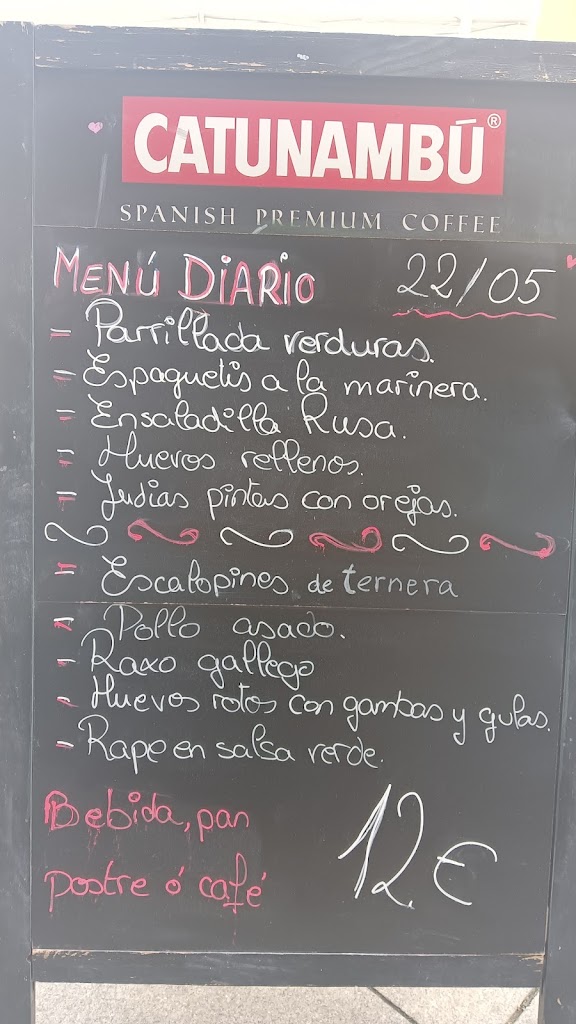 CATUNAMBÚ®
SPANISH PREMIUM COFFEE
MENÚ DIARIO 22/05
- Parrillada verduras.
- Espaguetis a la marinera.
- Ensaladilla Rusa.
- Huevos rellenos.
- Judias pintas con orejas.
- Escalopines de ternera
- Pollo asado.
- Raxo gallego
- Huevos rotos con gambas y gulas.
- Rape en salsa verde.
Bebida, pan
postre ó café
12€